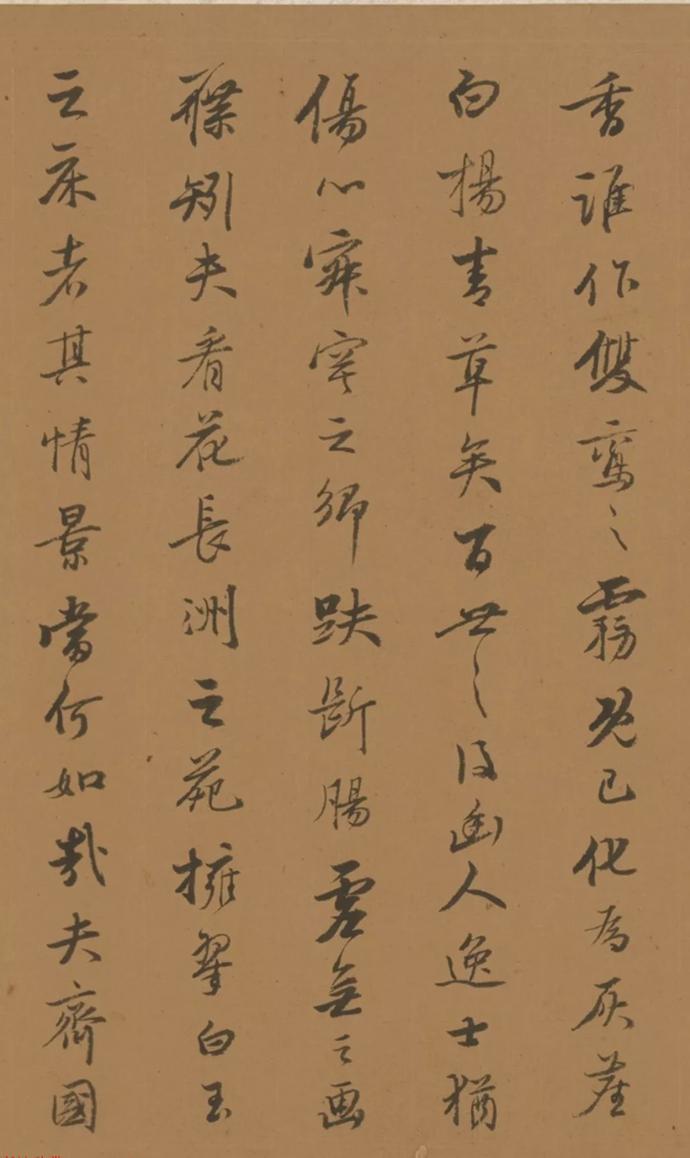 香誰作雙鸞之霧既已化為灰塵
白楊青草矣百世之後幽人逸士猶
傷心寂之趺斷腸虛無之画
矧夫看花長洲之苑擁翠白玉
之床者其情景當何如哉夫齊國